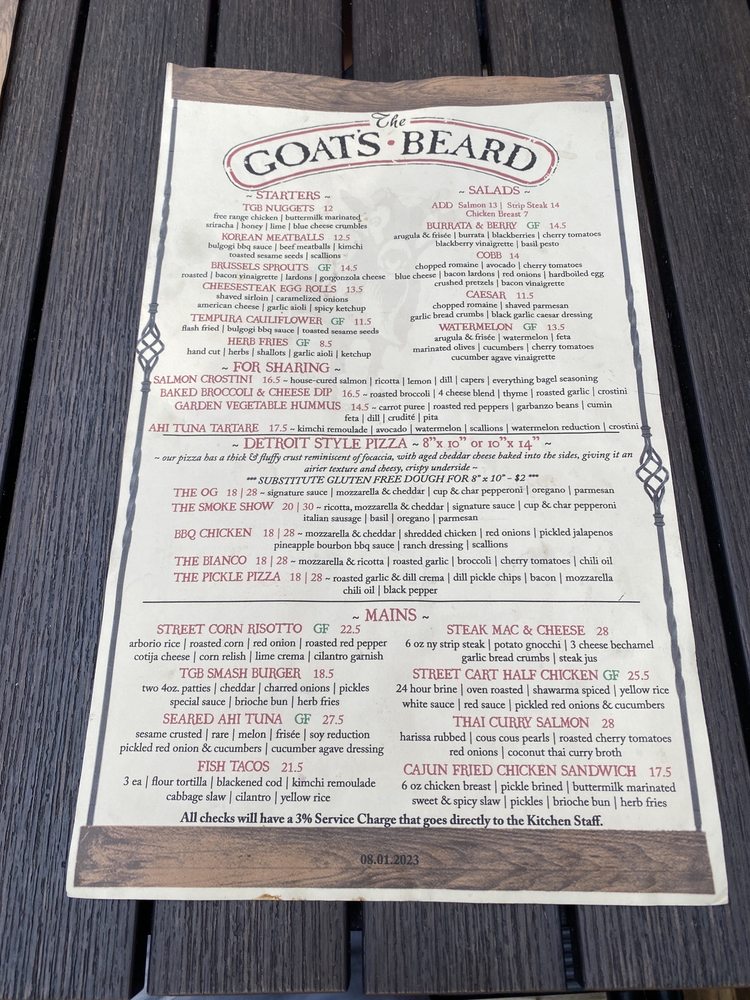 The
GOAT'S · BEARD
~ STARTERS ~
TGB NUGGETS 12
free range chicken | buttermilk marinated
sriracha | honey | lime | blue cheese crumbles
KOREAN MEATBALLS 12.5
bulgogi bbq sauce | beef meatballs | kimchi
toasted sesame seeds | scallions
BRUSSELS SPROUTS GF 14.5
roasted | bacon vinaigrette | lardons | gorgonzola cheese
CHEESESTEAK EGG ROLLS 13.5
shaved sirloin | caramelized onions
american cheese | garlic aioli | spicy ketchup
TEMPURA CAULIFLOWER GF 11.5
flash fried | bulgogi bbq sauce | toasted sesame seeds
HERB FRIES GF 8.5
hand cut | herbs | shallots | garlic aioli | ketchup
~ SALADS ~
ADD Salmon 13 | Strip Steak 14
Chicken Breast 7
BURRATA & BERRY GF 14.5
arugula & frisée | burrata | blackberries | cherry tomatoes
blackberry vinaigrette | basil pesto
COBB 14
chopped romaine | avocado | cherry tomatoes
blue cheese | bacon lardons | red onions | hardboiled egg
crushed pretzels | bacon vinaigrette
CAESAR 11.5
chopped romaine | shaved parmesan
garlic bread crumbs | black garlic caesar dressing
WATERMELON GF 13.5
arugula & frisée | watermelon | feta
marinated olives | cucumbers | cherry tomatoes
cucumber agave vinaigrette
~ FOR SHARING ~
SALMON CROSTINI 16.5 ~ house-cured salmon | ricotta | lemon | dill | capers | everything bagel seasoning
BAKED BROCCOLI & CHEESE DIP 16.5 ~ roasted broccoli | 4 cheese blend | thyme | roasted garlic | crostini
GARDEN VEGETABLE HUMMUS 14.5 ~ carrot puree | roasted red peppers | garbanzo beans | cumin
feta | dill | crudité | pita
AHI TUNA TARTARE 17.5 ~ kimchi remoulade | avocado | watermelon | scallions | watermelon reduction | crostini
~ DETROIT STYLE PIZZA ~ 8"x 10" or 10"x 14" ~
~ our pizza has a thick & fluffy crust reminiscent of focaccia, with aged cheddar cheese baked into the sides, giving it an
airier texture and cheesy, crispy underside ~
*** SUBSTITUTE GLUTEN FREE DOUGH FOR 8" x 10" - $2 ***
THE OG 18 | 28 ~ signature sauce | mozzarella & cheddar | cup & char pepperoni | oregano | parmesan
THE SMOKE SHOW 20 | 30 ~ ricotta, mozzarella & cheddar | signature sauce | cup & char pepperoni
italian sausage | basil | oregano | parmesan
BBQ CHICKEN 18 | 28 ~ mozzarella & cheddar | shredded chicken | red onions | pickled jalapenos
pineapple bourbon bbq sauce | ranch dressing | scallions
THE BIANCO 18 | 28 ~ mozzarella & ricotta | roasted garlic | broccoli | cherry tomatoes | chili oil
THE PICKLE PIZZA 18 | 28 ~ roasted garlic & dill crema | dill pickle chips | bacon | mozzarella
chili oil | black pepper
~ MAINS ~
STREET CORN RISOTTO GF 22.5
arborio rice | roasted corn | red onion | roasted red pepper
cotija cheese | corn relish | lime crema | cilantro garnish
TGB SMASH BURGER 18.5
two 4oz. patties | cheddar | charred onions | pickles
special sauce | brioche bun | herb fries
SEARED AHI TUNA GF 27.5
sesame crusted | rare | melon | frisée | soy reduction
pickled red onion & cucumbers | cucumber agave dressing
FISH TACOS 21.5
3 ea | flour tortilla | blackened cod | kimchi remoulade
cabbage slaw | cilantro | yellow rice
STEAK MAC & CHEESE 28
6 oz ny strip steak | potato gnocchi | 3 cheese bechamel
garlic bread crumbs | steak jus
STREET CART HALF CHICKEN GF 25.5
24 hour brine | oven roasted | shawarma spiced | yellow rice
white sauce | red sauce | pickled red onions & cucumbers
THAI CURRY SALMON 28
harissa rubbed | cous cous pearls | roasted cherry tomatoes
red onions | coconut thai curry broth
CAJUN FRIED CHICKEN SANDWICH 17.5
6 oz chicken breast | pickle brined | buttermilk marinated
sweet & spicy slaw | pickles | brioche bun | herb fries
All checks will have a 3% Service Charge that goes directly to the Kitchen Staff.
08.01.2023